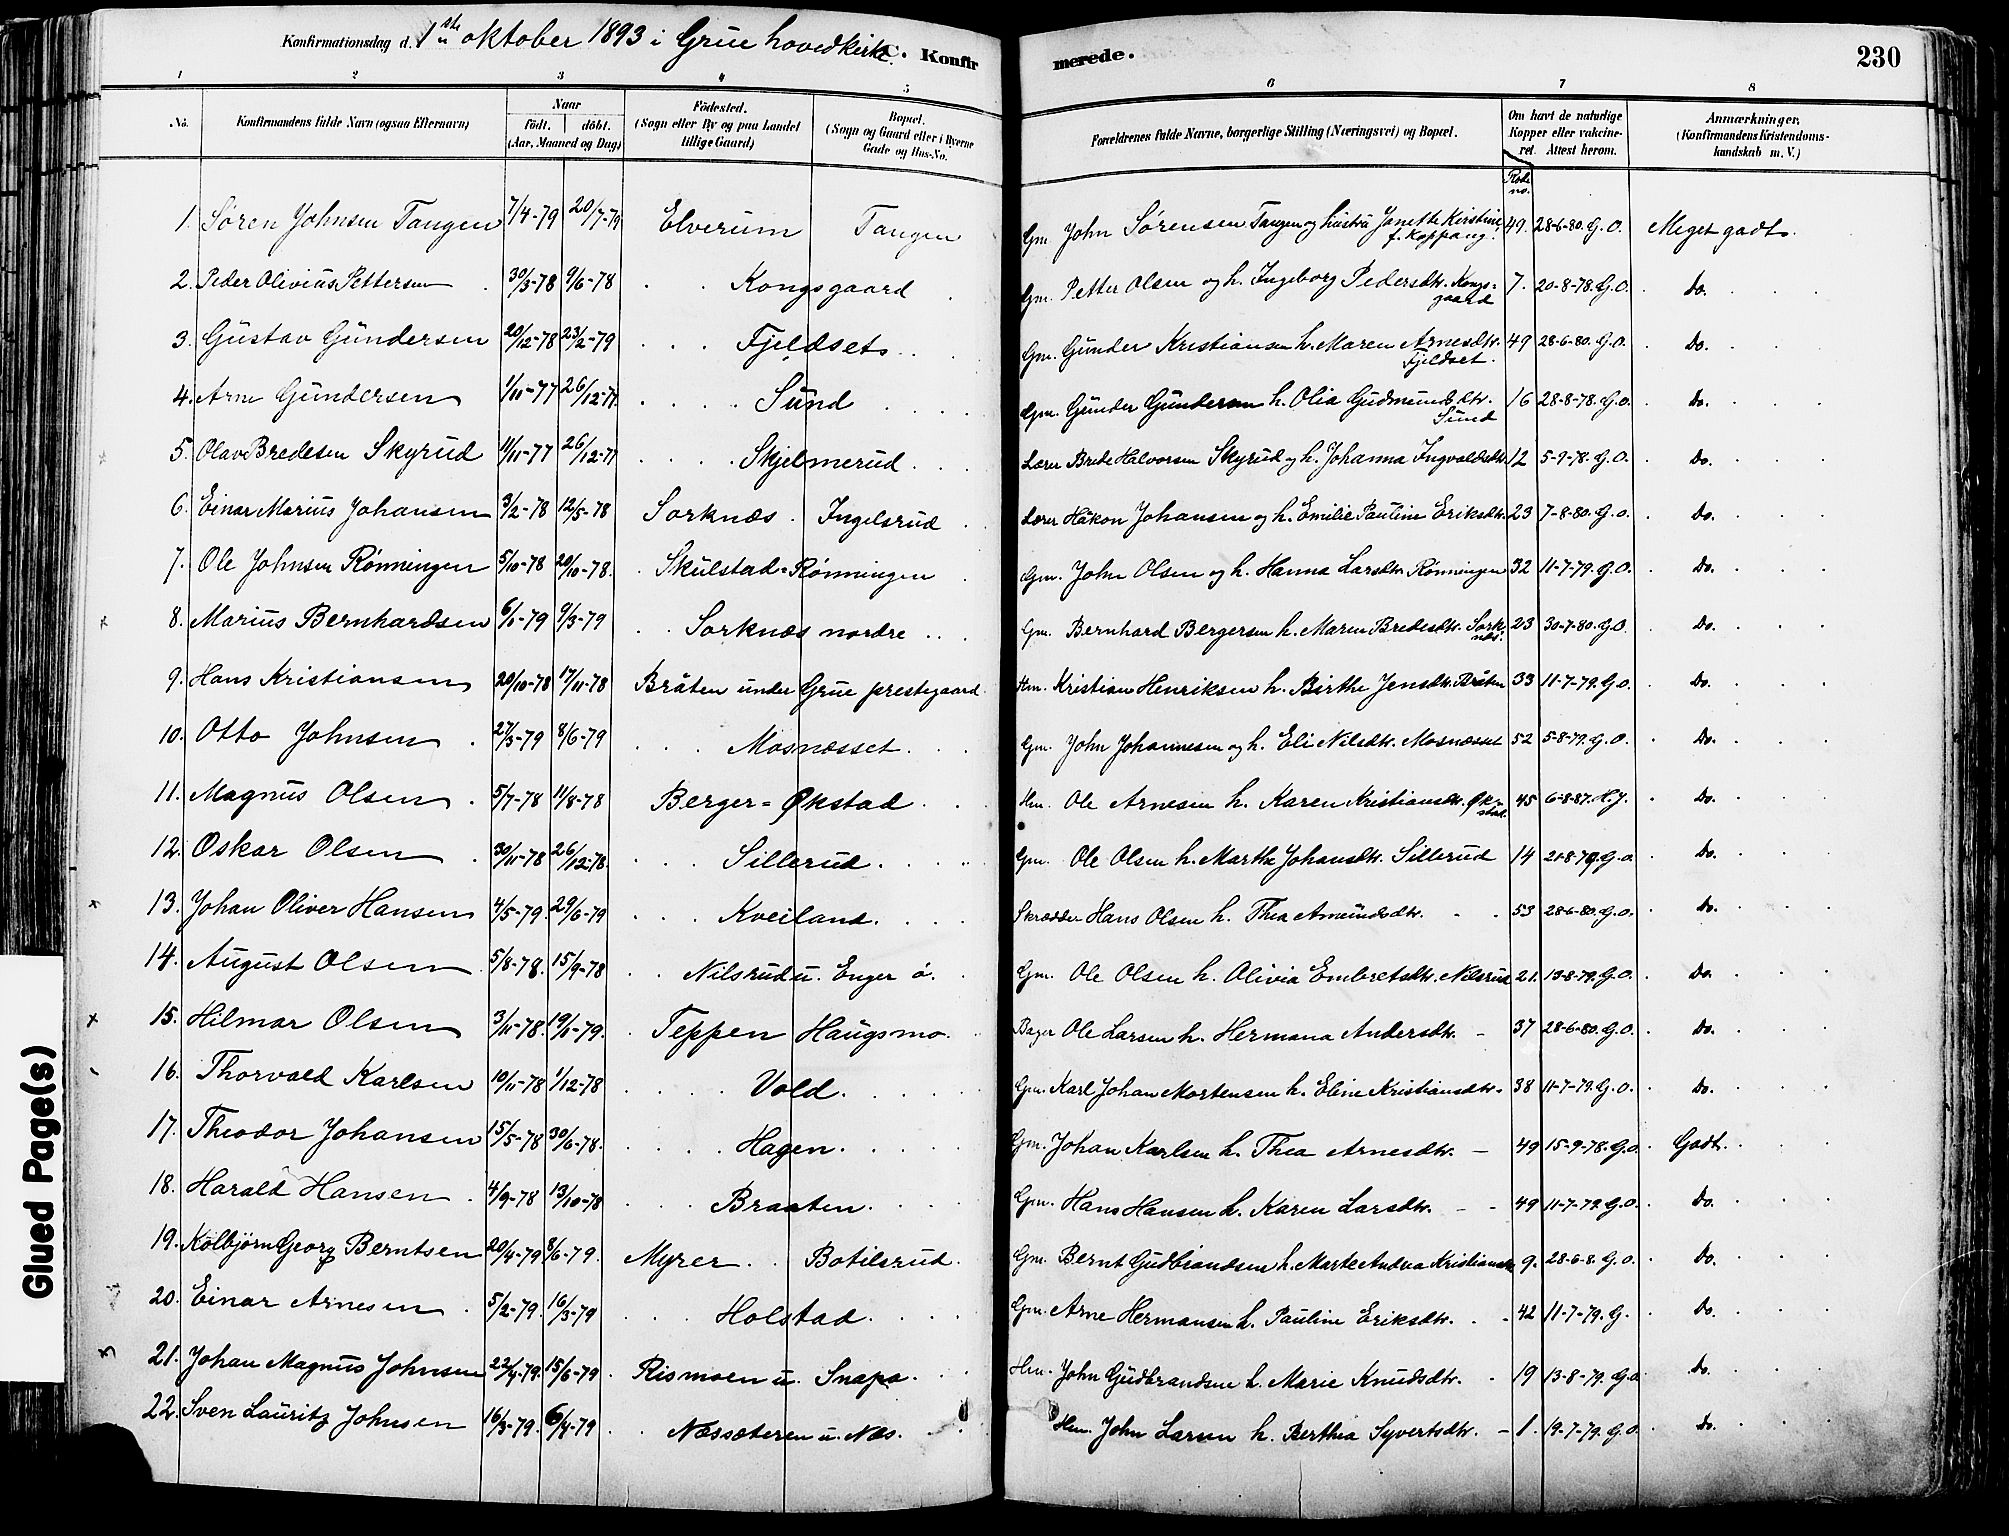 Konfirmationsdag d. 1ste oktober 1893 i Grue hovedkirke. C. Konfirmerede. 230
1 2 3 4 5 6 7 8
No. Konfirmandens fulde Navn (ogsaa Efternavn) Naar födt. döbt. (Aar, Maaned og Dag) Födested. (Sogn eller By og paa Landet tillige Gaard) Bopæl. (Sogn og Gaard eller i Byerne Gade og Hus-No. Forældrenes fulde Navne, borgerlige Stilling (Næringsvei) og Bopæl. Om havt de naturlige Kopper eller vakcineret. Attest herom. Anmærkninger. (Konfirmandens Kristendomskundskab m. V.)
1. Søren Johnsen Tangen 7/4-79 20/7-79 Elverum Tangen Gm. John Sørensen Tangen og hustru Janette Kirstine f. Koppang. 49. 28-6-80. G.O. Meget godt.
2. Peder Olivius Pettersen 30/3-78 9/6-78 Kongsgaard Gm. Petter Olsen og h. Ingeborg Pedersdtr. Kongsgaard 7. 20-8-78. G.O. Do.
3. Gustav Gundersen 20/12-78 23/2-79 Fjeldset Gm. Gunder Kristiansen h. Maren Arnesdtr. Fjeldset. 49 28-6-80. G.O. Do.
4. Arne Gundersen 1/11-77 26/12-77 Sund Gm. Gunder Gundersen h. Olia Gudmundsdtr. Sund 16 28-8-78. G.O. Do.
5. Olav Bredesen Skyrud 11/11-77 26/12-77 Skjelmerud Lærer Brede Halvorsen Skyrud og h. Johanna Ingvaldsdtr. 12 5-9-78. G.O. Do.
6. Einar Marius Johansen 3/2-78 12/5-78 Sorknæs Ingelsrud Lærer Håkon Johansen og h. Emilie Pauline Eriksdtr. 23 7-8-80. G.O. Do.
7. Ole Johnsen Rønningen 5/10-78 20/10-78. Skulstad-Rønningen Gm. John Olsen og h. Hanna Larsdtr. Rønningen 32 11-7-79. G.O. Do.
8. Marius Bernhardsen 6/1-79 9/3-79 Sorknæs nordre Gm. Bernhard Bergersen h. Maren Bredesdtr. Sorknæs. 23 30-7-80. G.O. Do.
9. Hans Kristiansen 20/10-78 17/11-78 Bråten under Grue prestegaard. Hm. Kristian Henriksen h. Birthe Jensdtr. Bråten 33 11-7-79. G.O. Do.
10. Otto Johnsen 27/3-79 8/6-79 Mosnæsset Gm. John Johannesen og h. Eli Nilsdtr. Mosnæsset 52 5-8-79. G.O. Do.
11. Magnus Olsen 5/7-78 11/8-78 Berger=Økstad Hm. Ole Arnesen h. Karen Kristiansdtr. Økstad. 45 6-8-87. H.J. Do.
12. Oskar Olsen 30/11-78 26/12-78. Sillerud Gm. Ole Olsen h. Marthe Johansdtr. Sillerud 14 21-8-79. G.O. Do.
13. Johan Oliver Hansen 4/5-79. 29/6-79 Kveiland Skrædder Hans Olsen h. Thea Amundsdtr. 53 28-6-80. G.O. Do.
14. August Olsen 5/8-78. 15/9-78 Nilsrud u. Enger ö. Gm. Ole Olsen h. Olivia Embretsdtr. Nilsrud 21. 13-8-79. G.O. Do.
15. Hilmar Olsen 3/11-78. 19/1-79. Teppen Haugsmo. Bager Ole Larsen h. Hermana Andersdtr. 37 28-6-80. G.O. Do.
16. Thorvald Karlsen 10/11-78 1/12-78 Vold. Gm. Karl Johan Mortensen h. Eline Kristiansdtr. 38 11-7-79. G.O. Do.
17. Theodor Johansen 15/5-78 30/6-78. Hagen. Gm. Johan Karlsen h. Thea Arnesdtr. 49 15-9-78. G.O. Godt.
18. Harald Hansen 4/9-78 13/10-78 Braaten. Gm. Hans Hansen h. Karen Larsdtr. 49 11-7-79. G.O. Do.
19. Kolbjørn Georg Berntsen 20/4-79 8/6-79. Myrer Botilsrud. Gm. Bernt Gudbrandsen h. Marte Andrea Kristiansdtr. 9. 28-6-8. G.O. Do.
20. Einar Arnesen 5/2-79. 16/3-79 Holstad. Gm. Arne Hermansen h. Pauline Eriksdtr. 42 11-7-79. G. Do.
21. Johan Magnus Johnsen 22/4-79. 15/6-79 Rismoen u. Snapa. Hm. John Gudbrandsen h. Marie Knudsdtr. 19 13-8-79. G.O. Do.
22. Sven Lauritz Johnsen 16/3-79. 6/4-79 Næssæteren u. Næs. Hm. John Larsen h. Berthea Syvertsdtr. 1. 19-7-79. G.O. Do.
Glued Page(s)